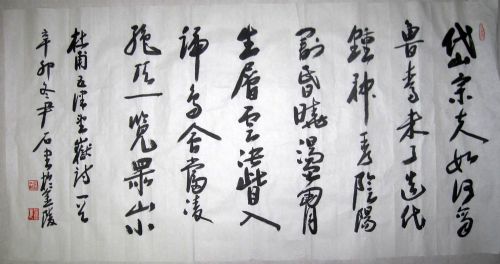 岱宗夫如何齊
魯青未了造化
鍾神秀陰陽
割昏曉盪胸
生層雲決眥入
歸鳥會當凌
絕頂一覽眾山小
杜甫五律望嶽詩一首
辛卯冬尹石書於金陵